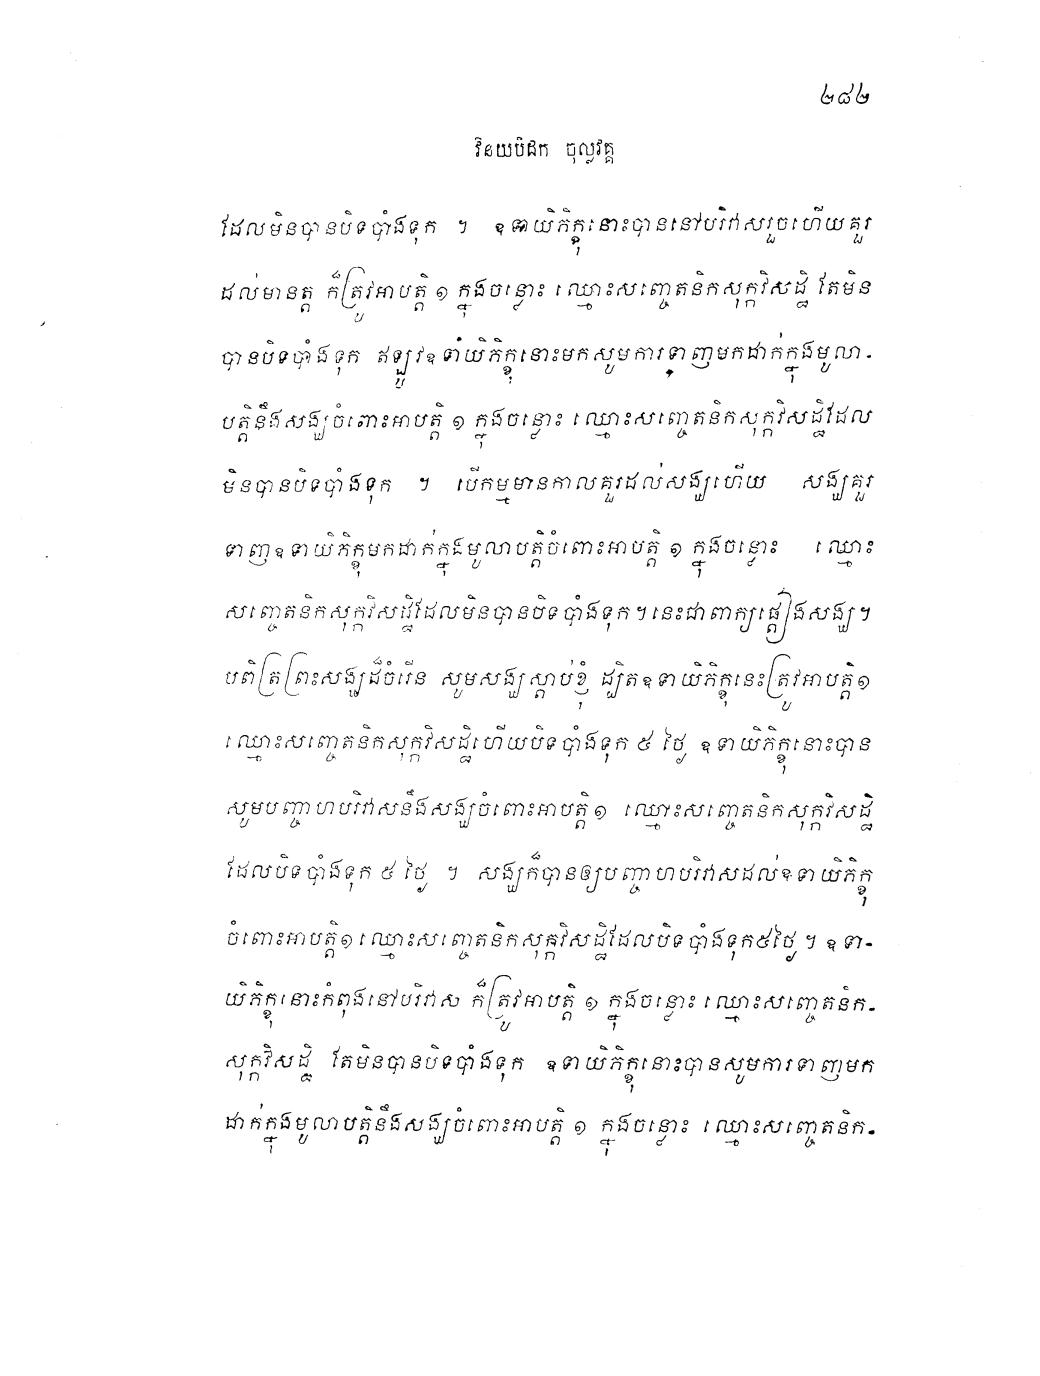 ២៨២
វិនយបិដក ចុល្លវគ្គ
ដែលមិនបានបិទបាំងទុក ។ ឧទាយិភិក្ខុនោះបាននៅបរិវាសរួចហើយគួរ
ដល់មានត្ត ក៏ត្រូវអាបត្តិ ១ ក្នុងចន្លោះ ឈ្មោះសញ្ចេតនិកសុក្កវិសដ្ឋិ តែមិន
បានបិទបាំងទុក ឥឡូវឧទាយិភិក្ខុនោះមកសូមការទាញមកដាក់ក្នុងមូលា-
បត្តិនឹងសង្ឃចំពោះអាបត្តិ ១ ក្នុងចន្លោះ ឈ្មោះសញ្ចេតនិកសុក្កវិសដ្ឋិដែល
មិនបានបិទបាំងទុក ។ បើកម្មមានកាលគួរដល់សង្ឃហើយ សង្ឃគួរ
ទាញឧទាយិភិក្ខុមកដាក់ក្នុងមូលាបត្តិចំពោះអាបត្តិ ១ ក្នុងចន្លោះ ឈ្មោះ
សញ្ចេតនិកសុក្កវិសដ្ឋិដែលមិនបានបិទបាំងទុក ។ នេះជាពាក្យផ្តៀងសង្ឃ ។
បពិត្រព្រះសង្ឃដ៏ចំរើន សូមសង្ឃស្តាប់ខ្ញុំ ដ្បិតឧទាយិភិក្ខុនេះត្រូវអាបត្តិ ១
ឈ្មោះសញ្ចេតនិកសុក្កវិសដ្ឋិហើយបិទបាំងទុក ៥ ថ្ងៃ ឧទាយិភិក្ខុនោះបាន
សូមបញ្ចាហបរិវាសនឹងសង្ឃចំពោះអាបត្តិ ១ ឈ្មោះសញ្ចេតនិកសុក្កវិសដ្ឋិ
ដែលបិទបាំងទុក ៥ ថ្ងៃ ។ សង្ឃក៏បានឲ្យបញ្ចាហបរិវាសដល់ឧទាយិភិក្ខុ
ចំពោះអាបត្តិ ១ ឈ្មោះសញ្ចេតនិកសុក្កវិសដ្ឋិដែលបិទបាំងទុក ៥ ថ្ងៃ ។ ឧទា-
យិភិក្ខុនោះកំពុងនៅបរិវាស ក៏ត្រូវអាបត្តិ ១ ក្នុងចន្លោះ ឈ្មោះសញ្ចេតនិក-
សុក្កវិសដ្ឋិ តែមិនបានបិទបាំងទុក ឧទាយិភិក្ខុនោះបានសូមការទាញមក
ដាក់ក្នុងមូលាបត្តិនឹងសង្ឃចំពោះអាបត្តិ ១ ក្នុងចន្លោះ ឈ្មោះសញ្ចេតនិក-